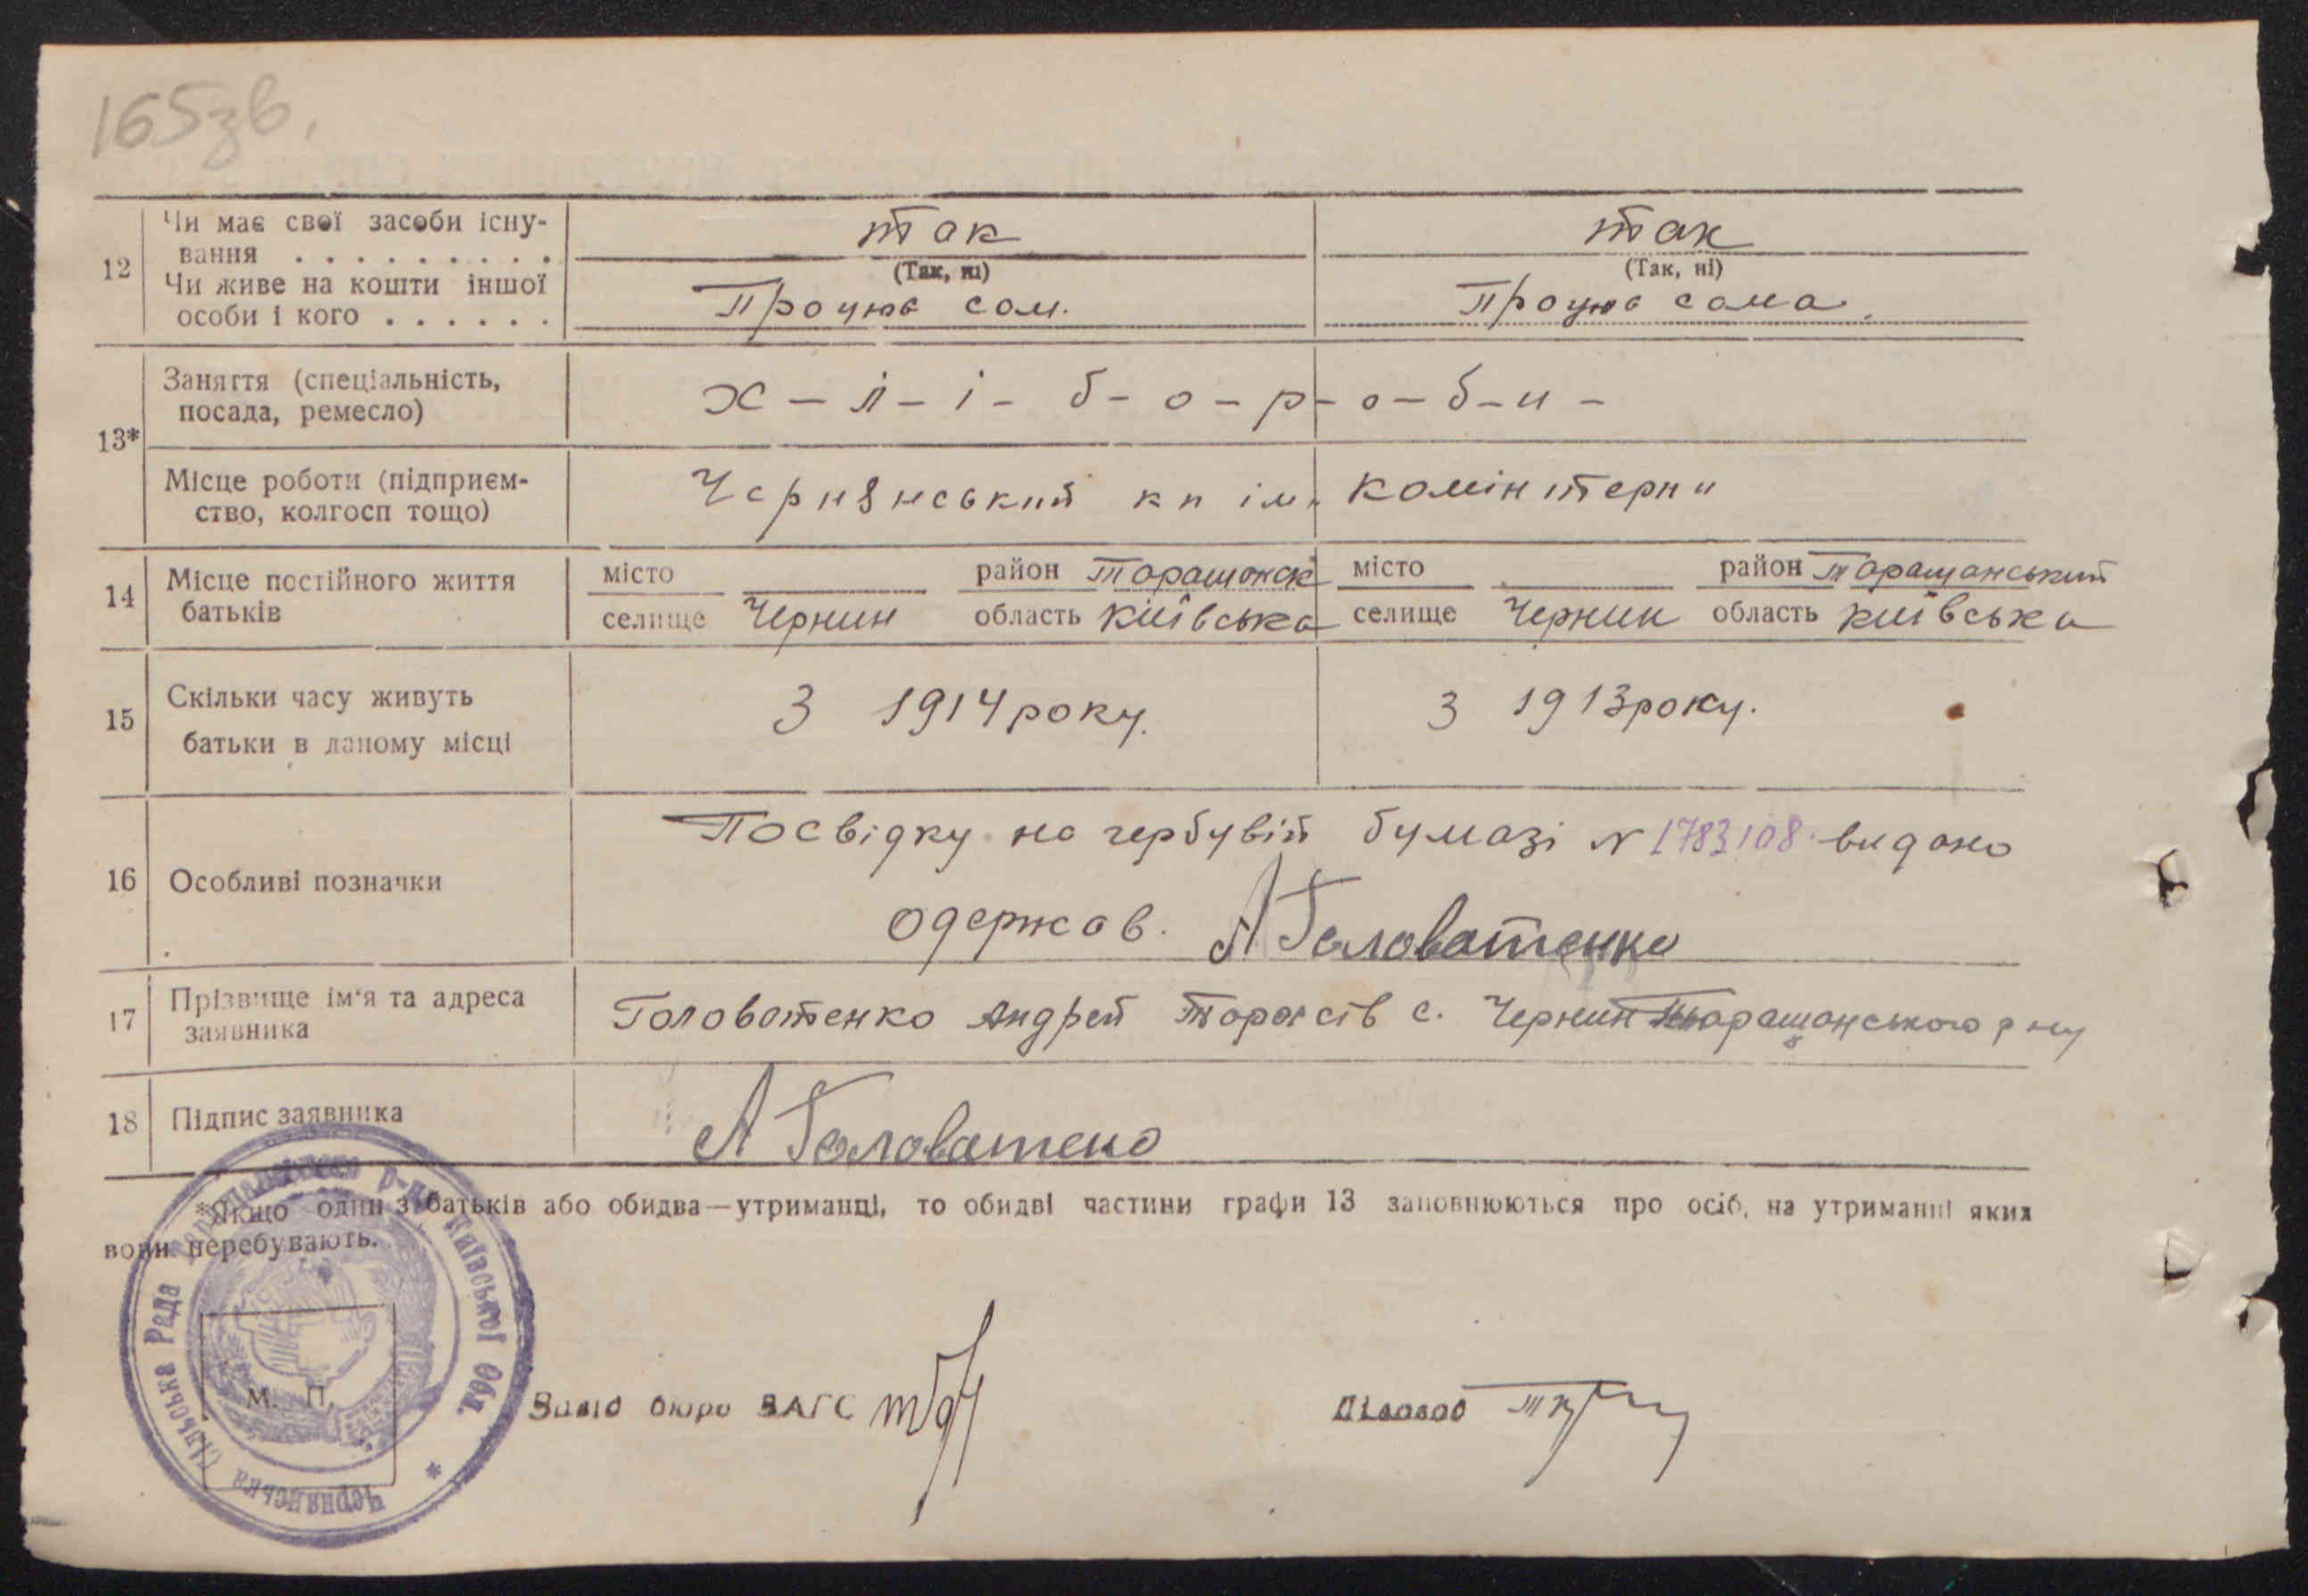 165зв.
12 Чи має свої засоби існування . . . . . . . . . так так
(Так, ні) (Так, ні)
Чи живе на кошти іншої особи і кого . . . . . . Працює сам. Працює сама.
13* Заняття (спеціальність, посада, ремесло) х - л - і - б - о - р - о - б - и -
Місце роботи (підприємство, колгосп тощо) Чернянський кп ім. комінтерни
14 Місце постійного життя батьків
місто район Таращанск місто район Таращанський
селище Чернин область Київська селище Чернин область Київська
15 Скільки часу живуть батьки в даному місці З 1914 року. З 1913 року.
16 Особливі позначки Посвідку на гербувій бумазі N 1783108 видано
одержав. А Головатенко
17 Прізвище ім'я та адреса заявника Головатенко Андрей с. Чернин Таращанського р ну
18 Підпис заявника А Головатено
*Якщо один з батьків або обидва—утриманці, то обидві частини графи 13 заповнюються про осіб, на утриманні яких
вони перебувають.
Чернянська Сільська Рада Таращанського р-ну Київської Обл. *
М. П.
Зав. бюро ЗАГС
Діловод